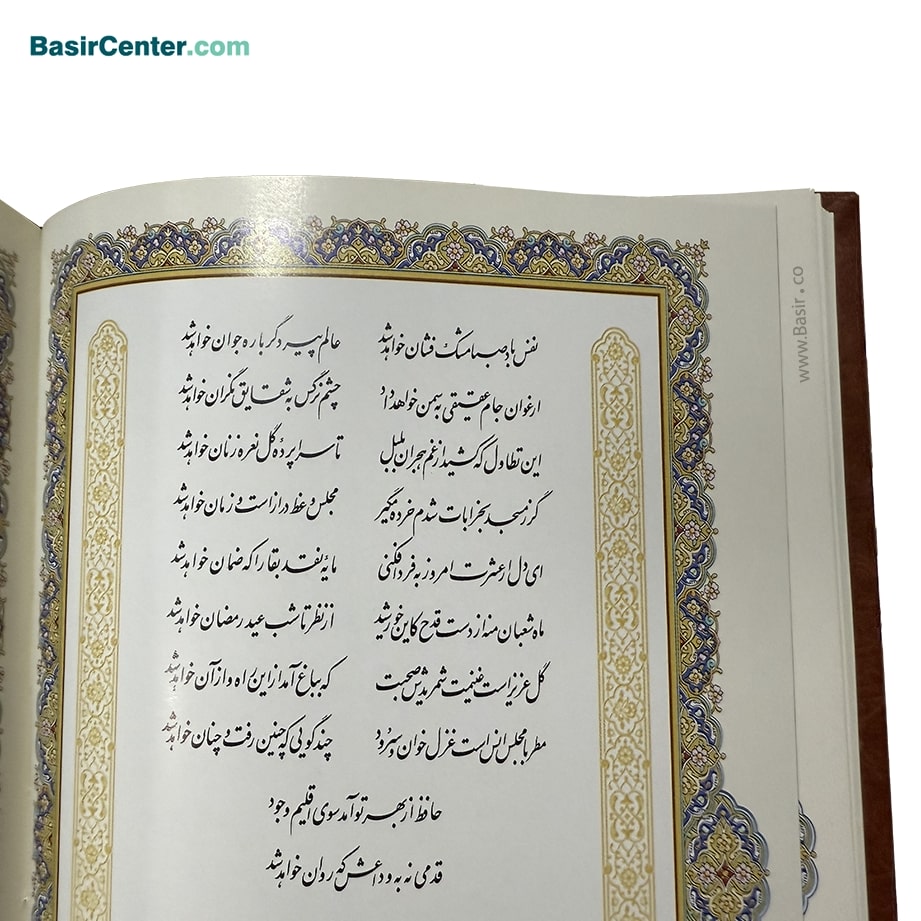 BasirCenter.com
www.Basir.co
نفس باد صبا مشک فشان خواهد شد عالم پیر دگر باره جوان خواهد شد
ارغوان جام عقیقی به سمن خواهد داد چشم نرگس به شقایق نگران خواهد شد
این تطاول که کشید از غم هجران بلبل تا سراپردهٔ گل نعره زنان خواهد شد
گر ز مسجد بخرابات شدم خرده مگیر مجلس وعظ دراز است و زمان خواهد شد
ای دل ار عشرت امروز به فردا فکنی مایهٔ نقد بقا را که ضمان خواهد شد
ماه شعبان منه از دست قدح کاین خورشید از نظر تا شب عید رمضان خواهد شد
گل عزیز است غنیمت شمریدش صحبت که بباغ آمد ازین راه و از آن خواهد شد
مطربا مجلس انس است غزل خوان و سرود چند گویی که چنین رفت و چنان خواهد شد
حافظ از بهر تو آمد سوی اقلیم وجود
قدمی نه به وداعش که روان خواهد شد